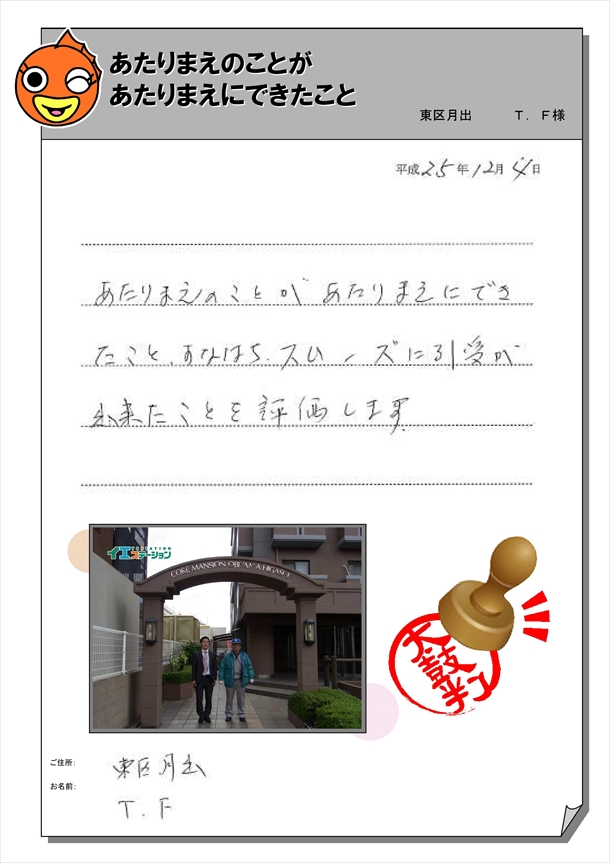 あたりまえのことが
あたりまえにできたこと
東区月出 T. F様
平成25年12月4日
あたりまえのことが あたりまえにでき
たこと、すなはち、スムーズに引受が
出来たことを評価します。
イエステーション
COKE MANSION OBIYAMA HIGASHI
太鼓判
ご住所: 東区月出
お名前: T. F